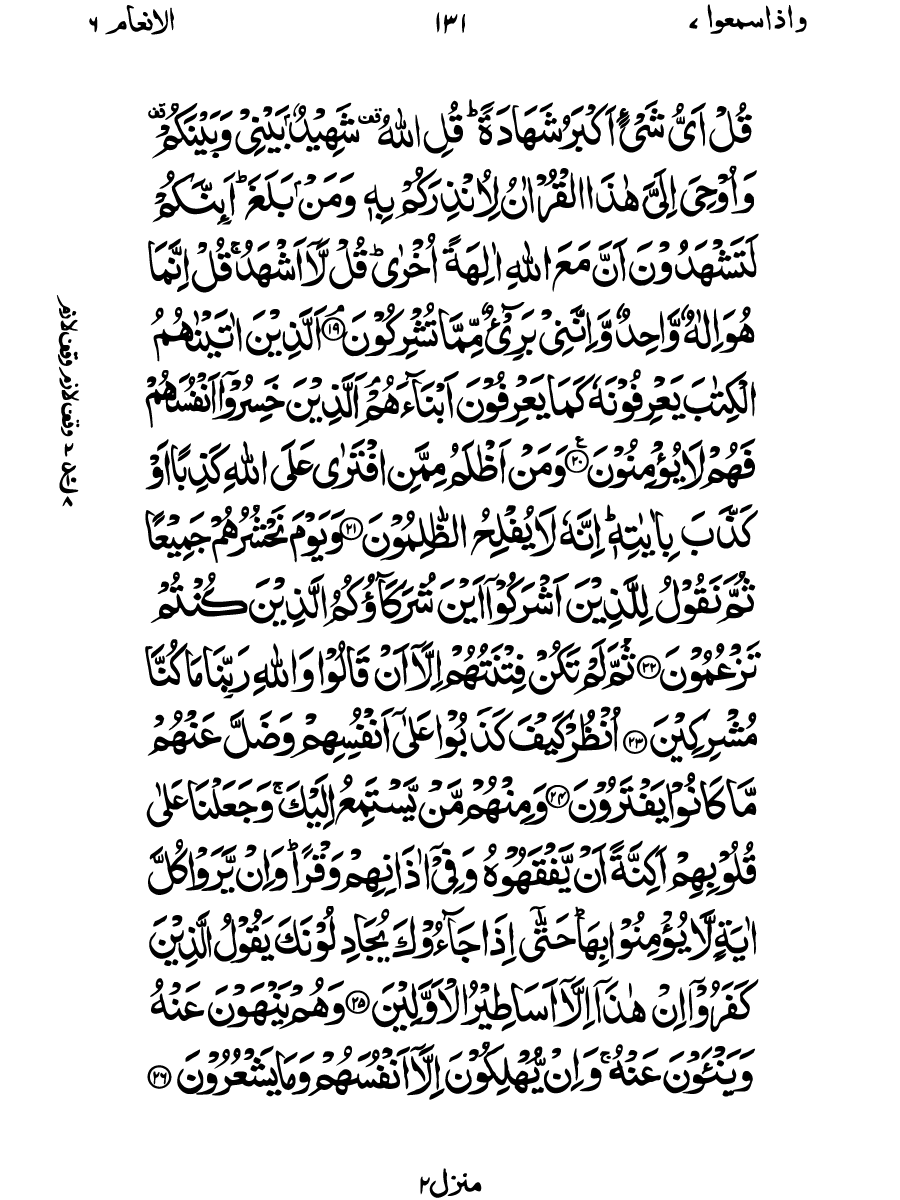 واذاسمعوا ٧ ١٣١ الانعام ٦
قُلْ اَىُّ شَىْءٍ اَكْبَرُ شَهَادَةً ؕ قُلِ اللّٰهُ ۙقف شَهِيْدٌۢ بَيْنِىْ وَبَيْنَكُمْ ۙقف
وَاُوْحِىَ اِلَىَّ هٰذَا الْقُرْاٰنُ لِاُنْذِرَكُمْ بِهٖ وَمَنْۢ بَلَغَ ؕ اَئِنَّكُمْ
لَتَشْهَدُوْنَ اَنَّ مَعَ اللّٰهِ اٰلِهَةً اُخْرٰى ؕ قُلْ لَّاۤ اَشْهَدُ ۚ قُلْ اِنَّمَا
هُوَ اِلٰهٌ وَّاحِدٌ وَّاِنَّنِىْ بَرِىْٓءٌ مِّمَّا تُشْرِكُوْنَ ۘ ﴿۱۹﴾ اَلَّذِيْنَ اٰتَيْنٰهُمُ
الْكِتٰبَ يَعْرِفُوْنَهٗ كَمَا يَعْرِفُوْنَ اَبْنَآءَهُمْ ۘ اَلَّذِيْنَ خَسِرُوْۤا اَنْفُسَهُمْ
فَهُمْ لَا يُؤْمِنُوْنَ ﴿۲۰﴾ۧ وَمَنْ اَظْلَمُ مِمَّنِ افْتَرٰى عَلَى اللّٰهِ كَذِبًا اَوْ
كَذَّبَ بِاٰيٰتِهٖ ؕ اِنَّهٗ لَا يُفْلِحُ الظّٰلِمُوْنَ ﴿۲۱﴾ وَيَوْمَ نَحْشُرُهُمْ جَمِيْعًا
ثُمَّ نَقُوْلُ لِلَّذِيْنَ اَشْرَكُوْۤا اَيْنَ شُرَكَآؤُكُمُ الَّذِيْنَ كُنْتُمْ
تَزْعُمُوْنَ ﴿۲۲﴾ ثُمَّ لَمْ تَكُنْ فِتْنَتُهُمْ اِلَّاۤ اَنْ قَالُوْا وَاللّٰهِ رَبِّنَا مَا كُنَّا
مُشْرِكِيْنَ ﴿۲۳﴾ اُنْظُرْ كَيْفَ كَذَبُوْا عَلٰٓى اَنْفُسِهِمْ وَضَلَّ عَنْهُمْ
مَّا كَانُوْا يَفْتَرُوْنَ ﴿۲۴﴾ وَمِنْهُمْ مَّنْ يَّسْتَمِعُ اِلَيْكَ ۚ وَجَعَلْنَا عَلٰى
قُلُوْبِهِمْ اَكِنَّةً اَنْ يَّفْقَهُوْهُ وَفِىْۤ اٰذَانِهِمْ وَقْرًا ؕ وَاِنْ يَّرَوْا كُلَّ
اٰيَةٍ لَّا يُؤْمِنُوْا بِهَا ؕ حَتّٰٓى اِذَا جَآءُوْكَ يُجَادِلُوْنَكَ يَقُوْلُ الَّذِيْنَ
كَفَرُوْۤا اِنْ هٰذَاۤ اِلَّاۤ اَسَاطِيْرُ الْاَوَّلِيْنَ ﴿۲۵﴾ وَهُمْ يَنْهَوْنَ عَنْهُ
وَيَنْئَوْنَ عَنْهُ ۚ وَاِنْ يُّهْلِكُوْنَ اِلَّاۤ اَنْفُسَهُمْ وَمَا يَشْعُرُوْنَ ﴿۲۶﴾
وقف لازم وقف لازم
منزل ٢